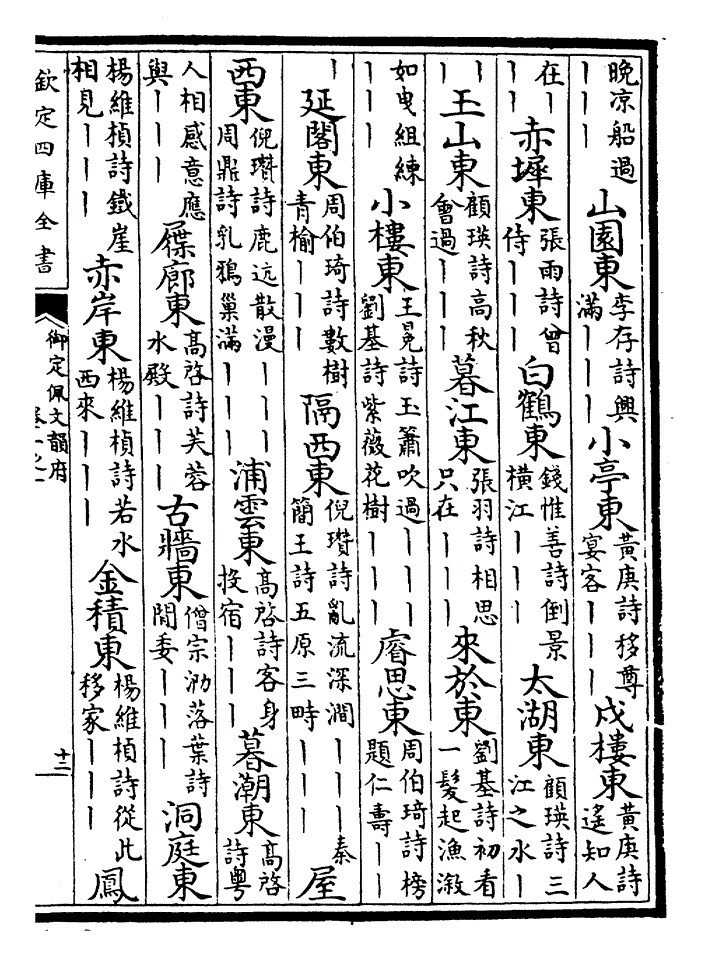 晚凉船過丨丨丨山園東李存詩興滿丨丨丨小亭東黃庚詩移尊宴客丨丨丨戍樓東黃庚詩遙知人
在丨丨丨赤墀東張雨詩曾侍丨丨丨白鶴東錢惟善詩倒景橫江丨丨丨太湖東顧瑛詩三江之水丨
丨丨王山東顧瑛詩高秋會過丨丨丨暮江東張羽詩相思只在丨丨丨來於東劉基詩初看一髮起漁漵
如曳組練丨丨丨小樓東王冕詩玉簫吹過丨丨丨劉基詩紫薇花樹丨丨丨睿思東周伯琦詩榜題仁壽丨丨
丨延閣東周伯琦詩數樹青榆丨丨丨隔西東倪瓚詩亂流深澗丨丨丨秦簡王詩五原三畤丨丨丨屋
西東倪瓚詩鹿迒散漫丨丨丨周鼎詩乳鴉巢滿丨丨丨浦雲東高啓詩客身投宿丨丨丨暮潮東高啓詩粤
人相感意應與丨丨丨屧廊東高啓詩芙蓉水殿丨丨丨古牆東僧宗泐落葉詩閒委丨丨丨洞庭東
楊維楨詩鐵崖相見丨丨丨赤岸東楊維楨詩若水西來丨丨丨金積東楊維楨詩從此移家丨丨丨鳳
欽定四庫全書
御定佩文韻府
卷一之一
十二